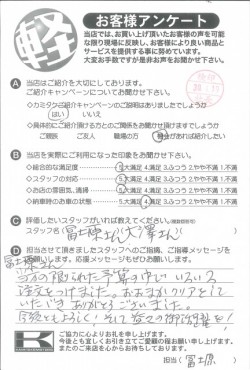 軽
お客様アンケート
当店では、お買い上げ頂いたお客様の声を可能
な限り現場に反映し、お客様により良い商品と
サービスを提供する事に努めています。
大変お手数ですが是非お声をお聞かせ下さい。
A 当店はご紹介を大切にしております。
ご紹介キャンペーンについてお聞かせ下さい。
・カミタケご紹介キャンペーンのご説明はありましたでしょうか
はい いいえ
◇具体的にご紹介頂ける方とのご関係をお聞かせ頂けますでしょうか
ご親族 ご友人 職場の方 機会があれば紹介したい
B 当店を実際にご利用になった印象をお聞かせ下さい。
・総合的な満足度 5.大満足 4.満足 3.ふつう 2.やや不満 1.不満
・スタッフの対応 5.大満足 4.満足 3.ふつう 2.やや不満 1.不満
・お店の雰囲気、清掃 5.大満足 4.満足 3.ふつう 2.やや不満 1.不満
・納車時のお車の状態 5.大満足 4.満足 3.ふつう 2.やや不満 1.不満
C 評価したいスタッフがいれば教えてください。
スタッフ名 冨原さん、大澤さん
D 担当させて頂きましたスタッフへのご指摘、ご指導、応援メッセージを
冨原さん
限られた予算の中でいろいろ
注文をつけました。おおまかクリアをして
いただきありがとうございました。
今後ともよろしく!そして益々の御活躍を!
ご協力に心よりお礼を申し上げます。
今後とも宜しくお引き立てご愛顧の程お願い申し上げます。
またのご来店を心からお待ちしております。
担当(冨原)